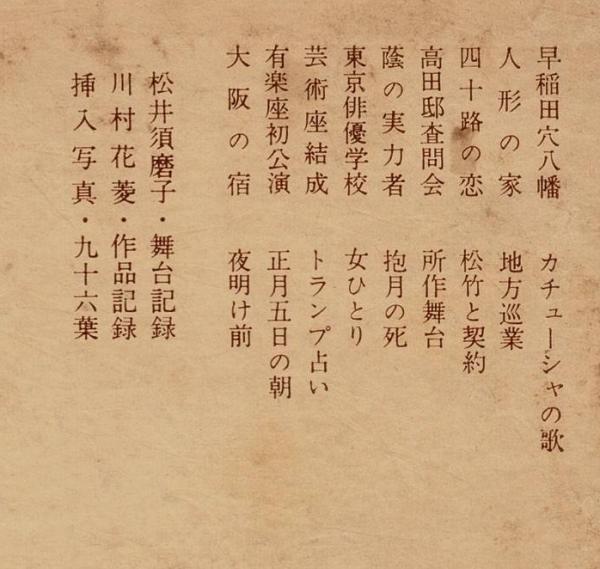 早稲田穴八幡
人形の家
四十路の恋
高田邸査問会
蔭の実力者
東京俳優学校
芸術座結成
有楽座初公演
大阪の宿
カチューシャの歌
地方巡業
松竹と契約
所作舞台
抱月の死
女ひとり
トランプ占い
正月五日の朝
夜明け前
松井須磨子・舞台記録
川村花菱・作品記録
挿入写真・九十六葉